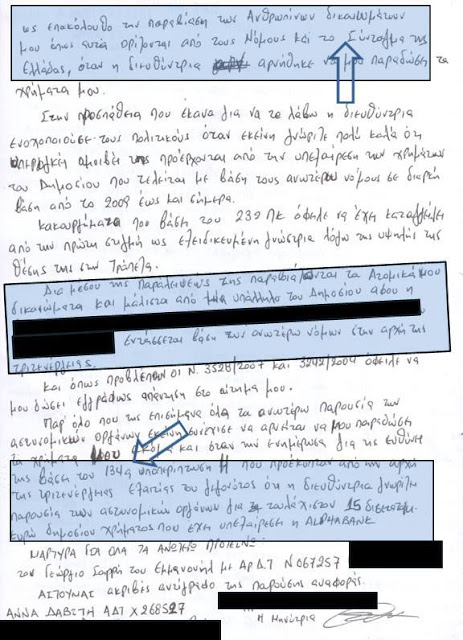 ως επακόλουθο την παραβίαση των Ανθρωπίνων δικαιωμάτων
μου όπως αυτά ορίζονται από τους Νόμους και το Σύνταγμα της
Ελλάδας, όταν η διευθύντρια αρνήθηκε να μου παραδώσει τα
χρήματα μου.
Στην προσπάθεια που έκανα για να τα λάβω η διευθύντρια
ενοχοποιούσε τους πολιτικούς όταν εκείνη γνώριζε πολύ καλά ότι
αμοιβές της προέρχονται από την υπεξαίρεση των χρημάτων
του Δημοσίου που τελείται με βάση τους ανωτέρω νόμους σε διαρκή
βάση από το 2009 έως και σήμερα.
Κακουργήματα που βάση του 232 ΠΚ όφειλε να έχει καταγγείλει
από την πρώτη στιγμή ως εξειδικευμένη γνώστρια λόγω της υψηλής της
θέσης της στην Τράπεζα.
Δια μέσου της Παραλείψεως της παραβιάζονται τα Ατομικά μου
δικαιώματα και μάλιστα από υπάλληλο του Δημοσίου αφού η
εντάσσεται βάση των ανωτέρω νόμων στην αρχή της
τριτενέργειας.
Και όπως προβλέπουν οι Ν. 3528/2007 και 3242/2004 όφειλε να
μου δώσει εγγράφως απάντηση στο αίτημα μου.
Παρ' όλο που της επεσήμανα όλα τα ανωτέρω παρουσία των
αστυνομικών οργάνων εκείνη συνέχισε να αρνείται να μου παραδώσει
τα χρήματα μου και όταν την ενημέρωσα για τις ευθύνες
της βάση του 134α υποπερίπτωση που προέκυπταν από την αρχή
της τριτενέργειας εξαιτίας του γεγονότος ότι η διευθύντρια γνώριζε
παρουσία των αστυνομικών οργάνων για τουλάχιστον 15 δισεκατομ.
ευρώ δημοσίου χρήματος που έχει υπεξαιρέσει η ALPHABANK
ΜΑΡΤΥΡΑ ΓΙΑ ΟΛΑ ΤΑ ΑΝΩΤΕΡΩ ΠΡΟΤΕΙΝΩ
τον Γεώργιο Σαρρή του Εμμανουήλ με ΑΡ Δ.Τ Ν 067257
ΑΙΤΟΥΜΑΙ ακριβές αντίγραφο της παρούσης αναφοράς.
ΑΝΝΑ ΔΑΒΙΤΗ ΑΔΤ Χ 268527
Η Μηνύτρια